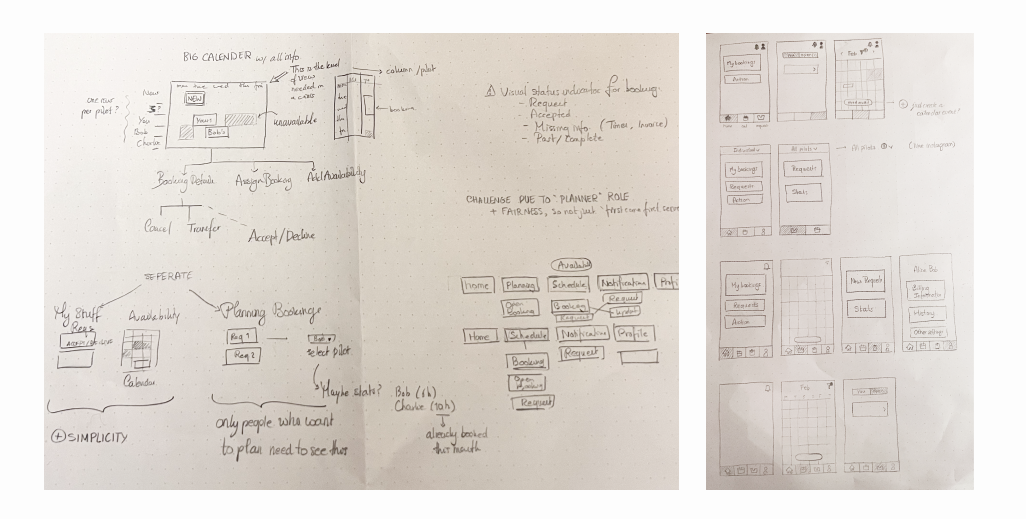 BIG CALENDER w/ all info
This is the level
of view
needed in
a crisis
mon tue wed thu fri
one row
per pilot?
None
You
Bob
Charlie
NEW
Yours
Bob's
unavailable
column/pilot
Booking Details
Assign Booking
Add Availability
Cancel
Transfer
Accept/Decline
Visual status indicator for booking
- Request
- Accepted
- Missing info (Times, Invoice)
- Past/Complete
CHALLENGE DUE TO "PLANNER" ROLE
+ FAIRNESS, so not just "first come first serve
SEPERATE
My Stuff
Reqs
Availability
Calendar
+ SIMPLICITY
Planning Bookings
Req 1
Req 2
Bob
select pilot
Maybe stats?
Bob (5h)
Charlie (10h)
already booked
this month
only people who want
to plan need to see this
Available
Home
Planning
Schedule
Notification
Profi
Open
Booking
Booking
Request
Request
Update
Home
Schedule
Notification
Profile
Booking
Open
Booking
Request
Request
My bookings
Action
Feb
My bookings
Requests
Action
All pilots
Requests
Stats
All pilots
(like instagram)
My bookings
Requests
Action
New Requests
Stats
Billing
Information
History
Other settings
Feb
You